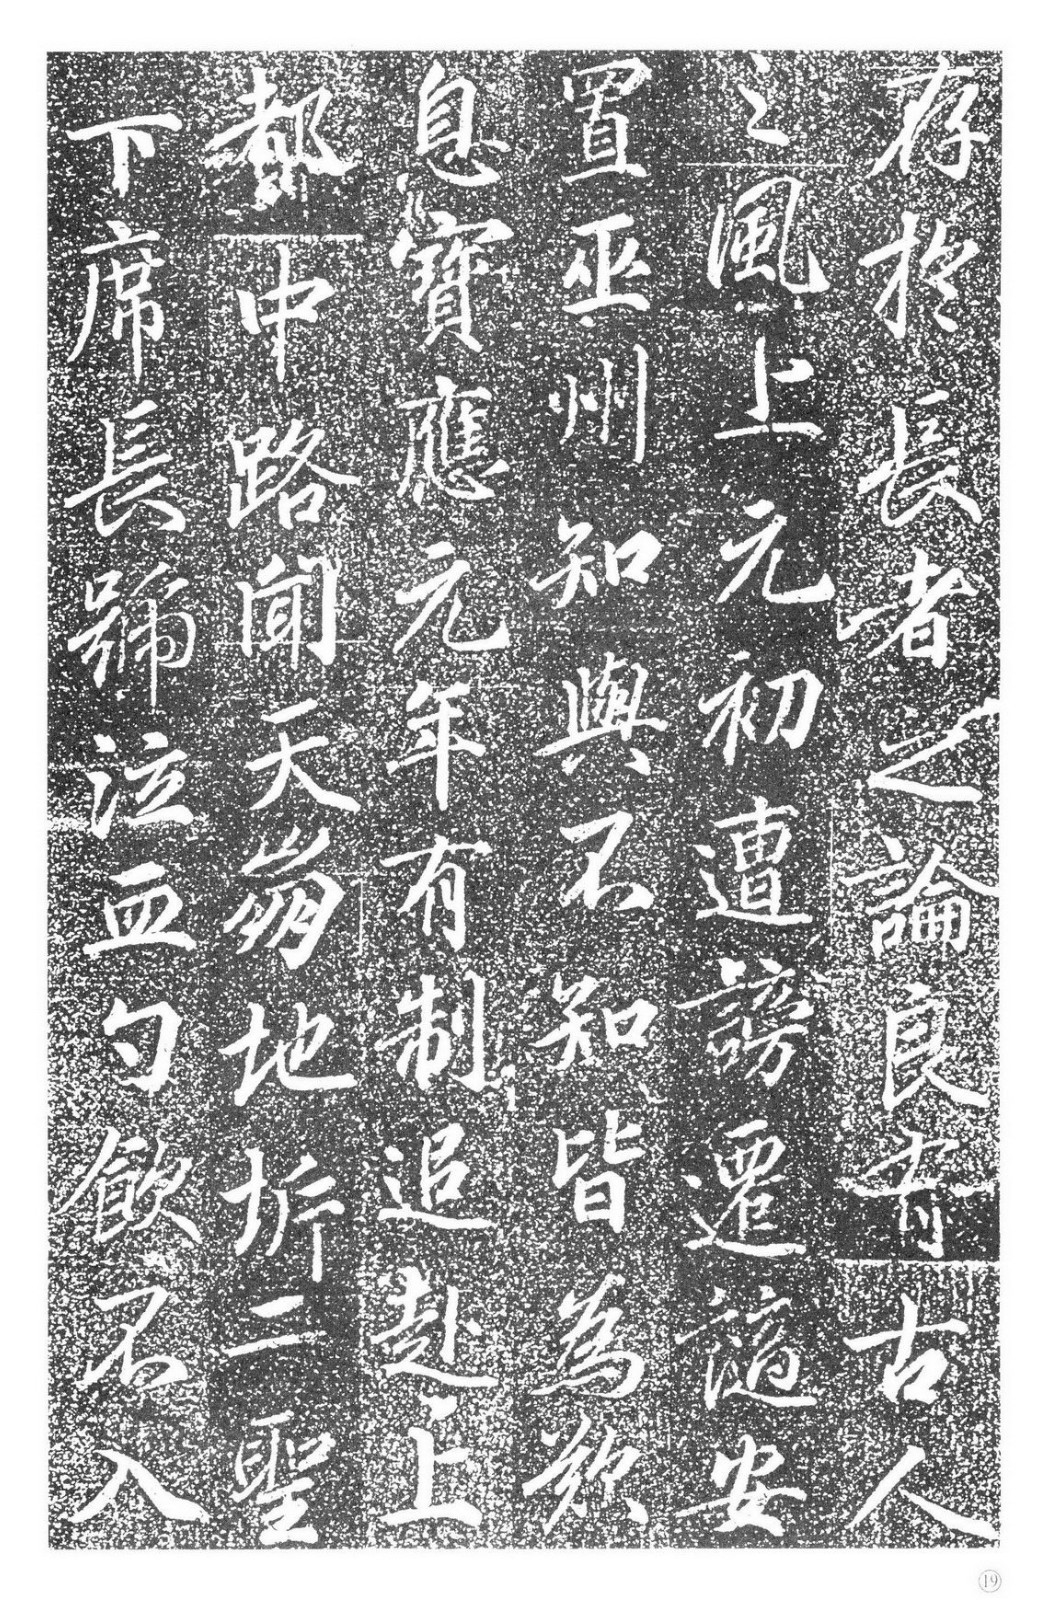 存於長者之論良有古人
之風上元初遭謗遷謫安
置巫州知與不知皆為歎
息寶應元年有制追赴上
都中路聞天崩地坼二聖
下席長號泣血勺飲不入
19